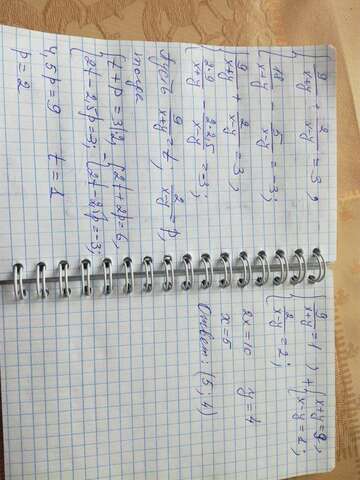 { 9/(x+y) + 2/(x-y) = 3,
{ 18/(x+y) - 5/(x-y) = -3;
{ 9/(x+y) + 2/(x-y) = 3;
{ 2·9/(x+y) - 2·2,5/(x-y) = -3;
Пусть 9/(x+y) = t; 2/(x-y) = p,
тогда
{ t + p = 3 |·2, = { 2t + 2p = 6,
{ 2t - 2,5p = -3; { 2t - 2,5p = -3;
4,5p = 9 t = 1
p = 2
{ 9/(x+y) = 1 ) + { x+y = 9,
{ 2/(x-y) = 2; { x-y = 1;
2x = 10 y = 4
x = 5
Ответ: (5; 4)